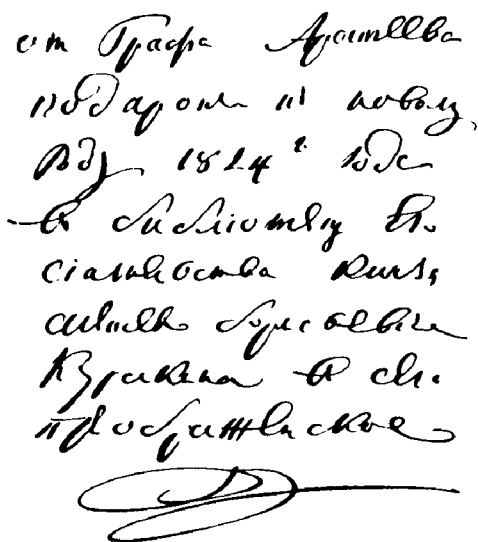 от Графа Аракчеева
подарок к новому
году 1824 г. года
в библиотеку Его
сиятельства князя
Алексея Борисовича
Куракина в село
преображенское